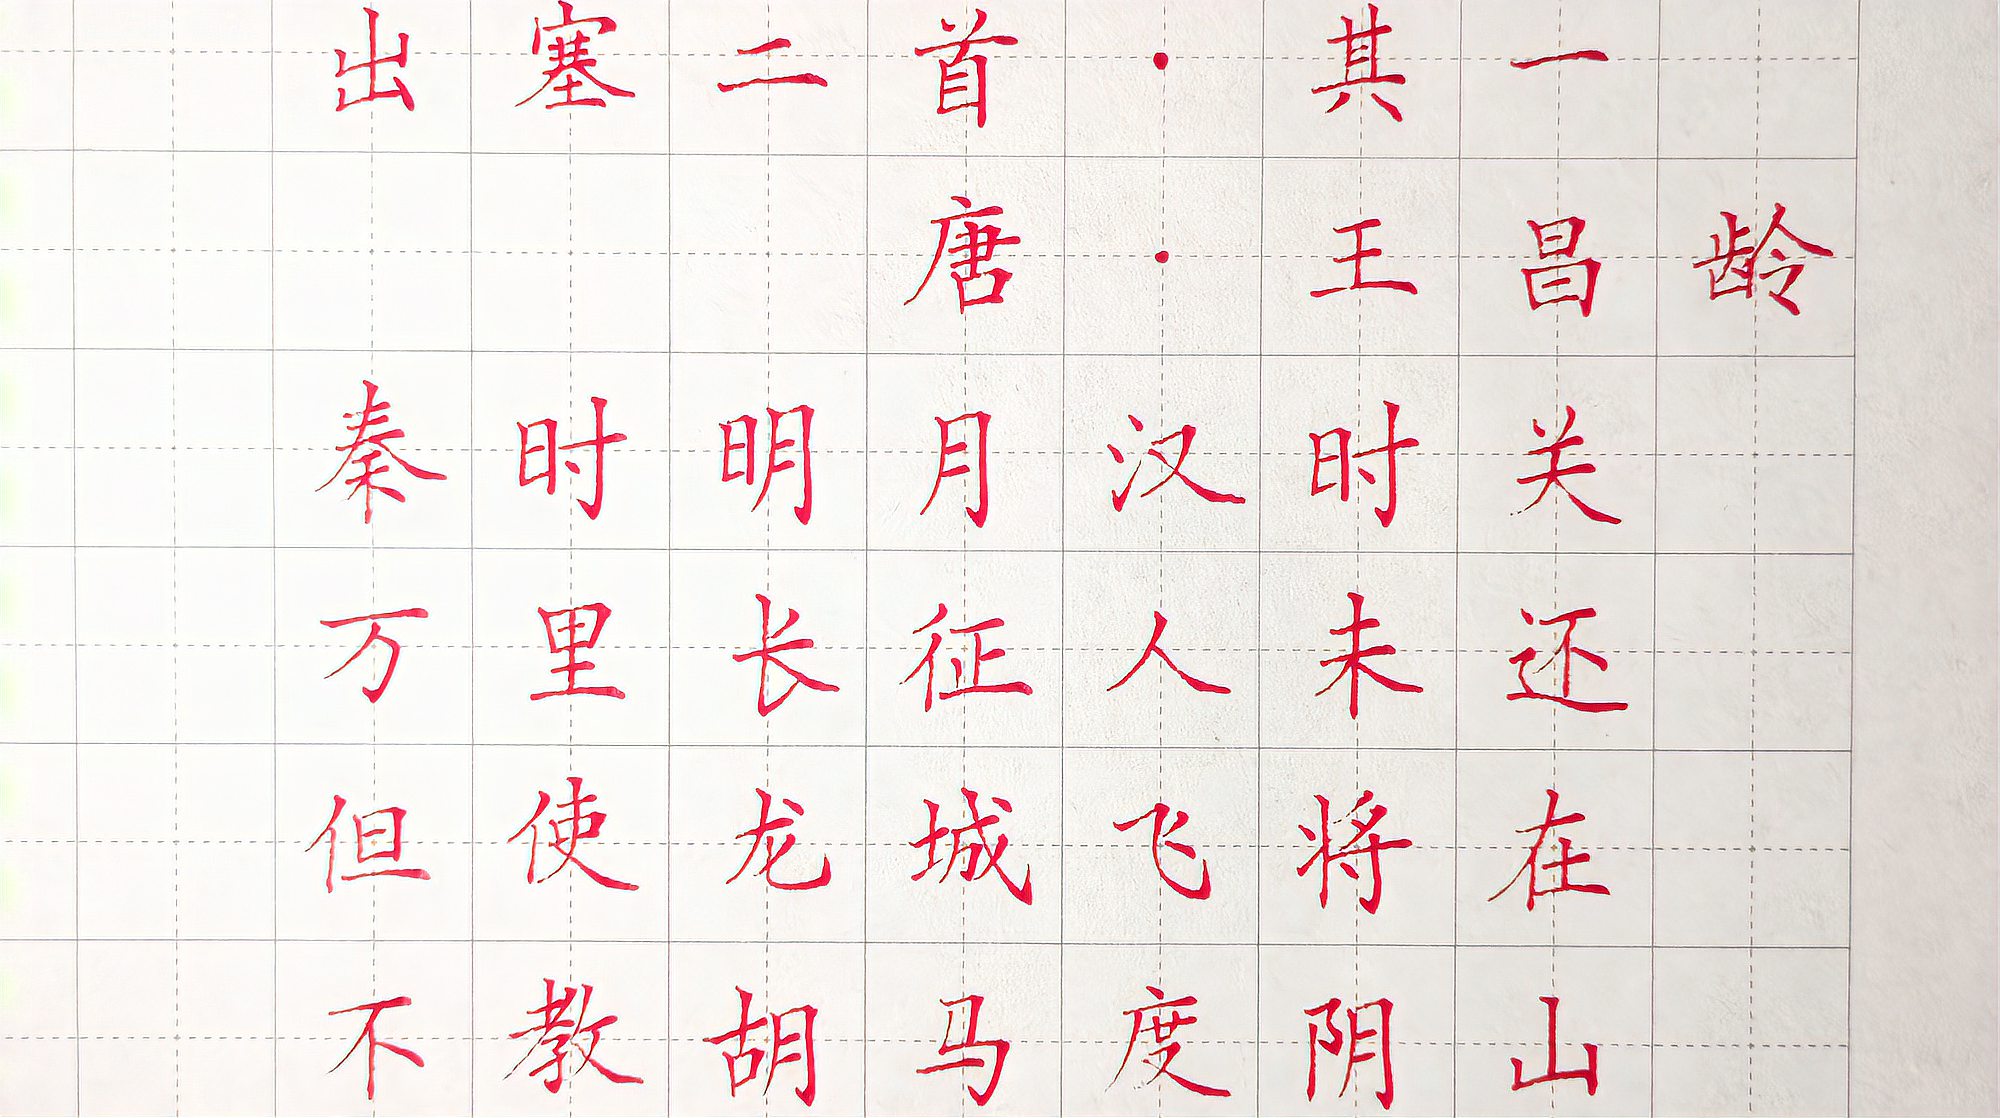 出塞二首·其一
唐·王昌龄
秦时明月汉时关
万里长征人未还
但使龙城飞将在
不教胡马度阴山